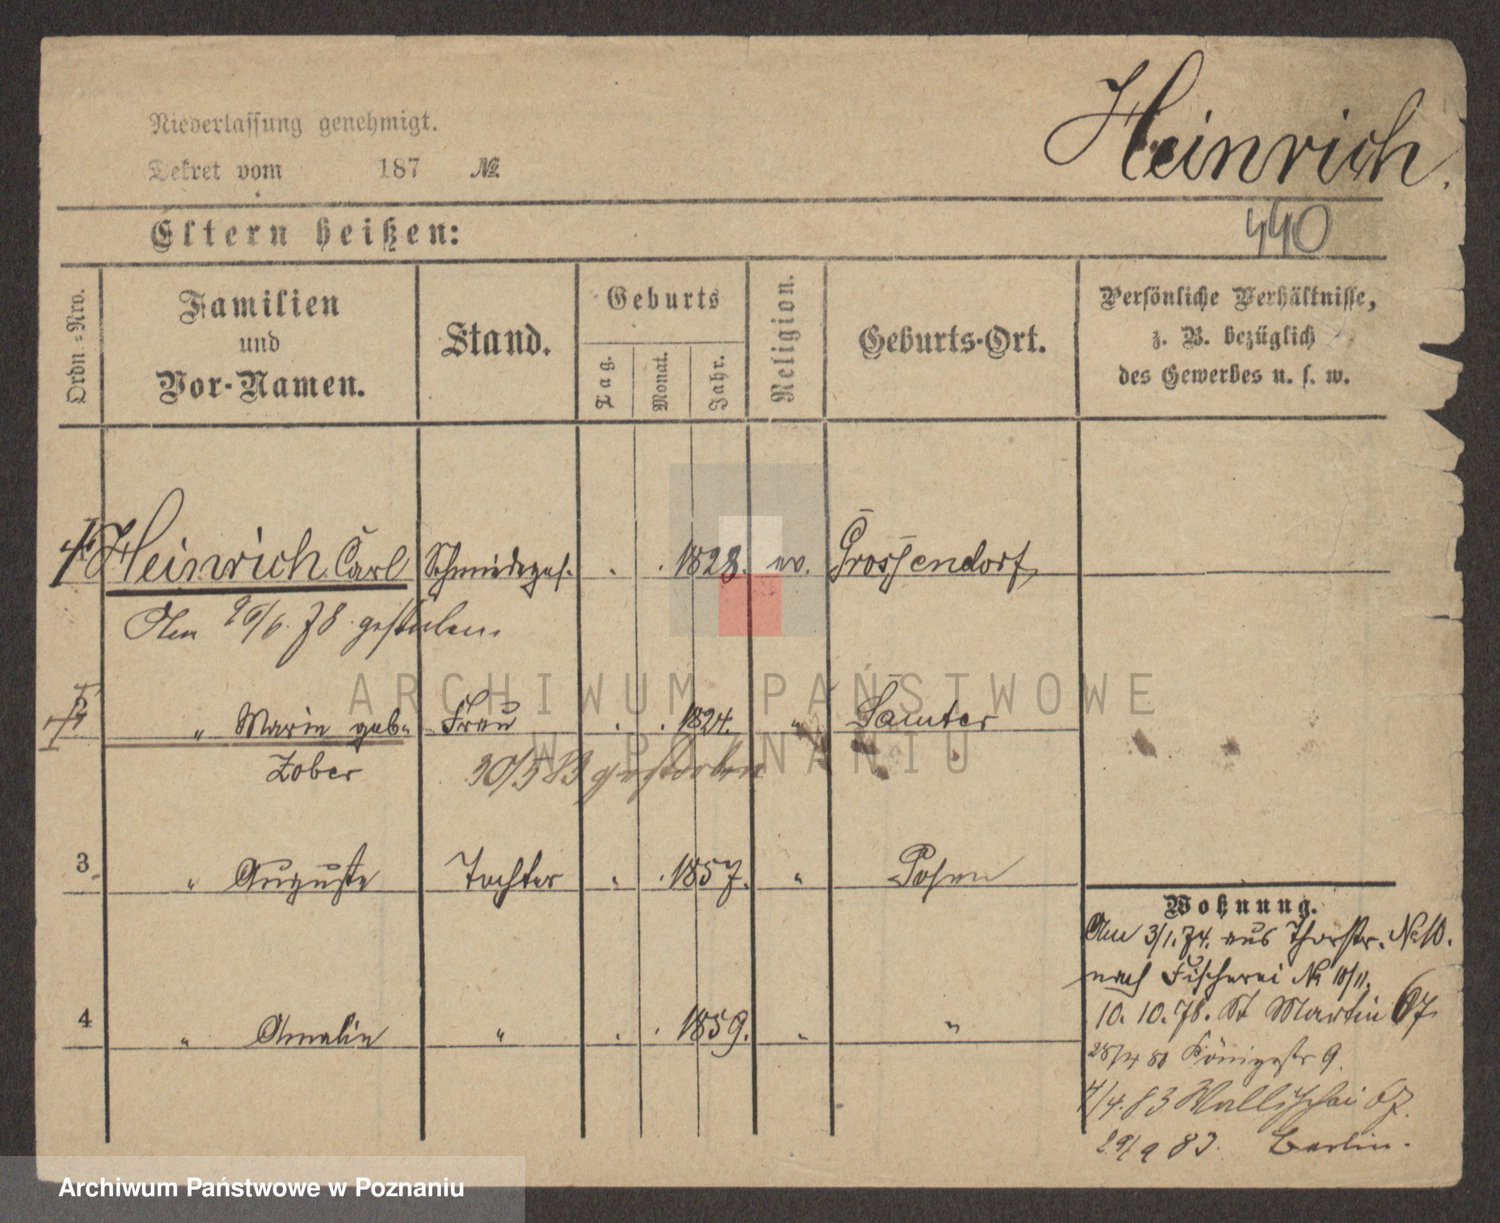 Heinrich.
Niederlassung genehmigt.
Dekret vom 187 №
440
Eltern heißen:
Ordn.-Nro.
Familien
und
Vor-Namen.
Stand.
Geburts
Tag.
Monat.
Jahr.
Religion.
Geburts-Ort.
Persönliche Verhältnisse,
z. B. bezüglich
des Gewerbes u. s. w.
Heinrich Carl Schmiedeges. . . 1828. ev. Grossendorf
Am 26/6. 78 gestorben.
2 " Marie geb. Frau . . 1824. " Samter
Zober 30/5 83 gestorben
3 " Auguste Tochter " . 1857. " Posen
4 " Amalie " . . 1859. " "
Wohnung.
Am 3/1. 74. aus Thorstr. № 10.
nach Fischerei № 10/11.
10. 10. 78. St Martin 67
28/4 80 Königsstr 9.
4/4. 83 Wallischei 67.
29/9 83. Berlin.
ARCHIWUM PAŃSTWOWE
W POZNANIU
Archiwum Państwowe w Poznaniu